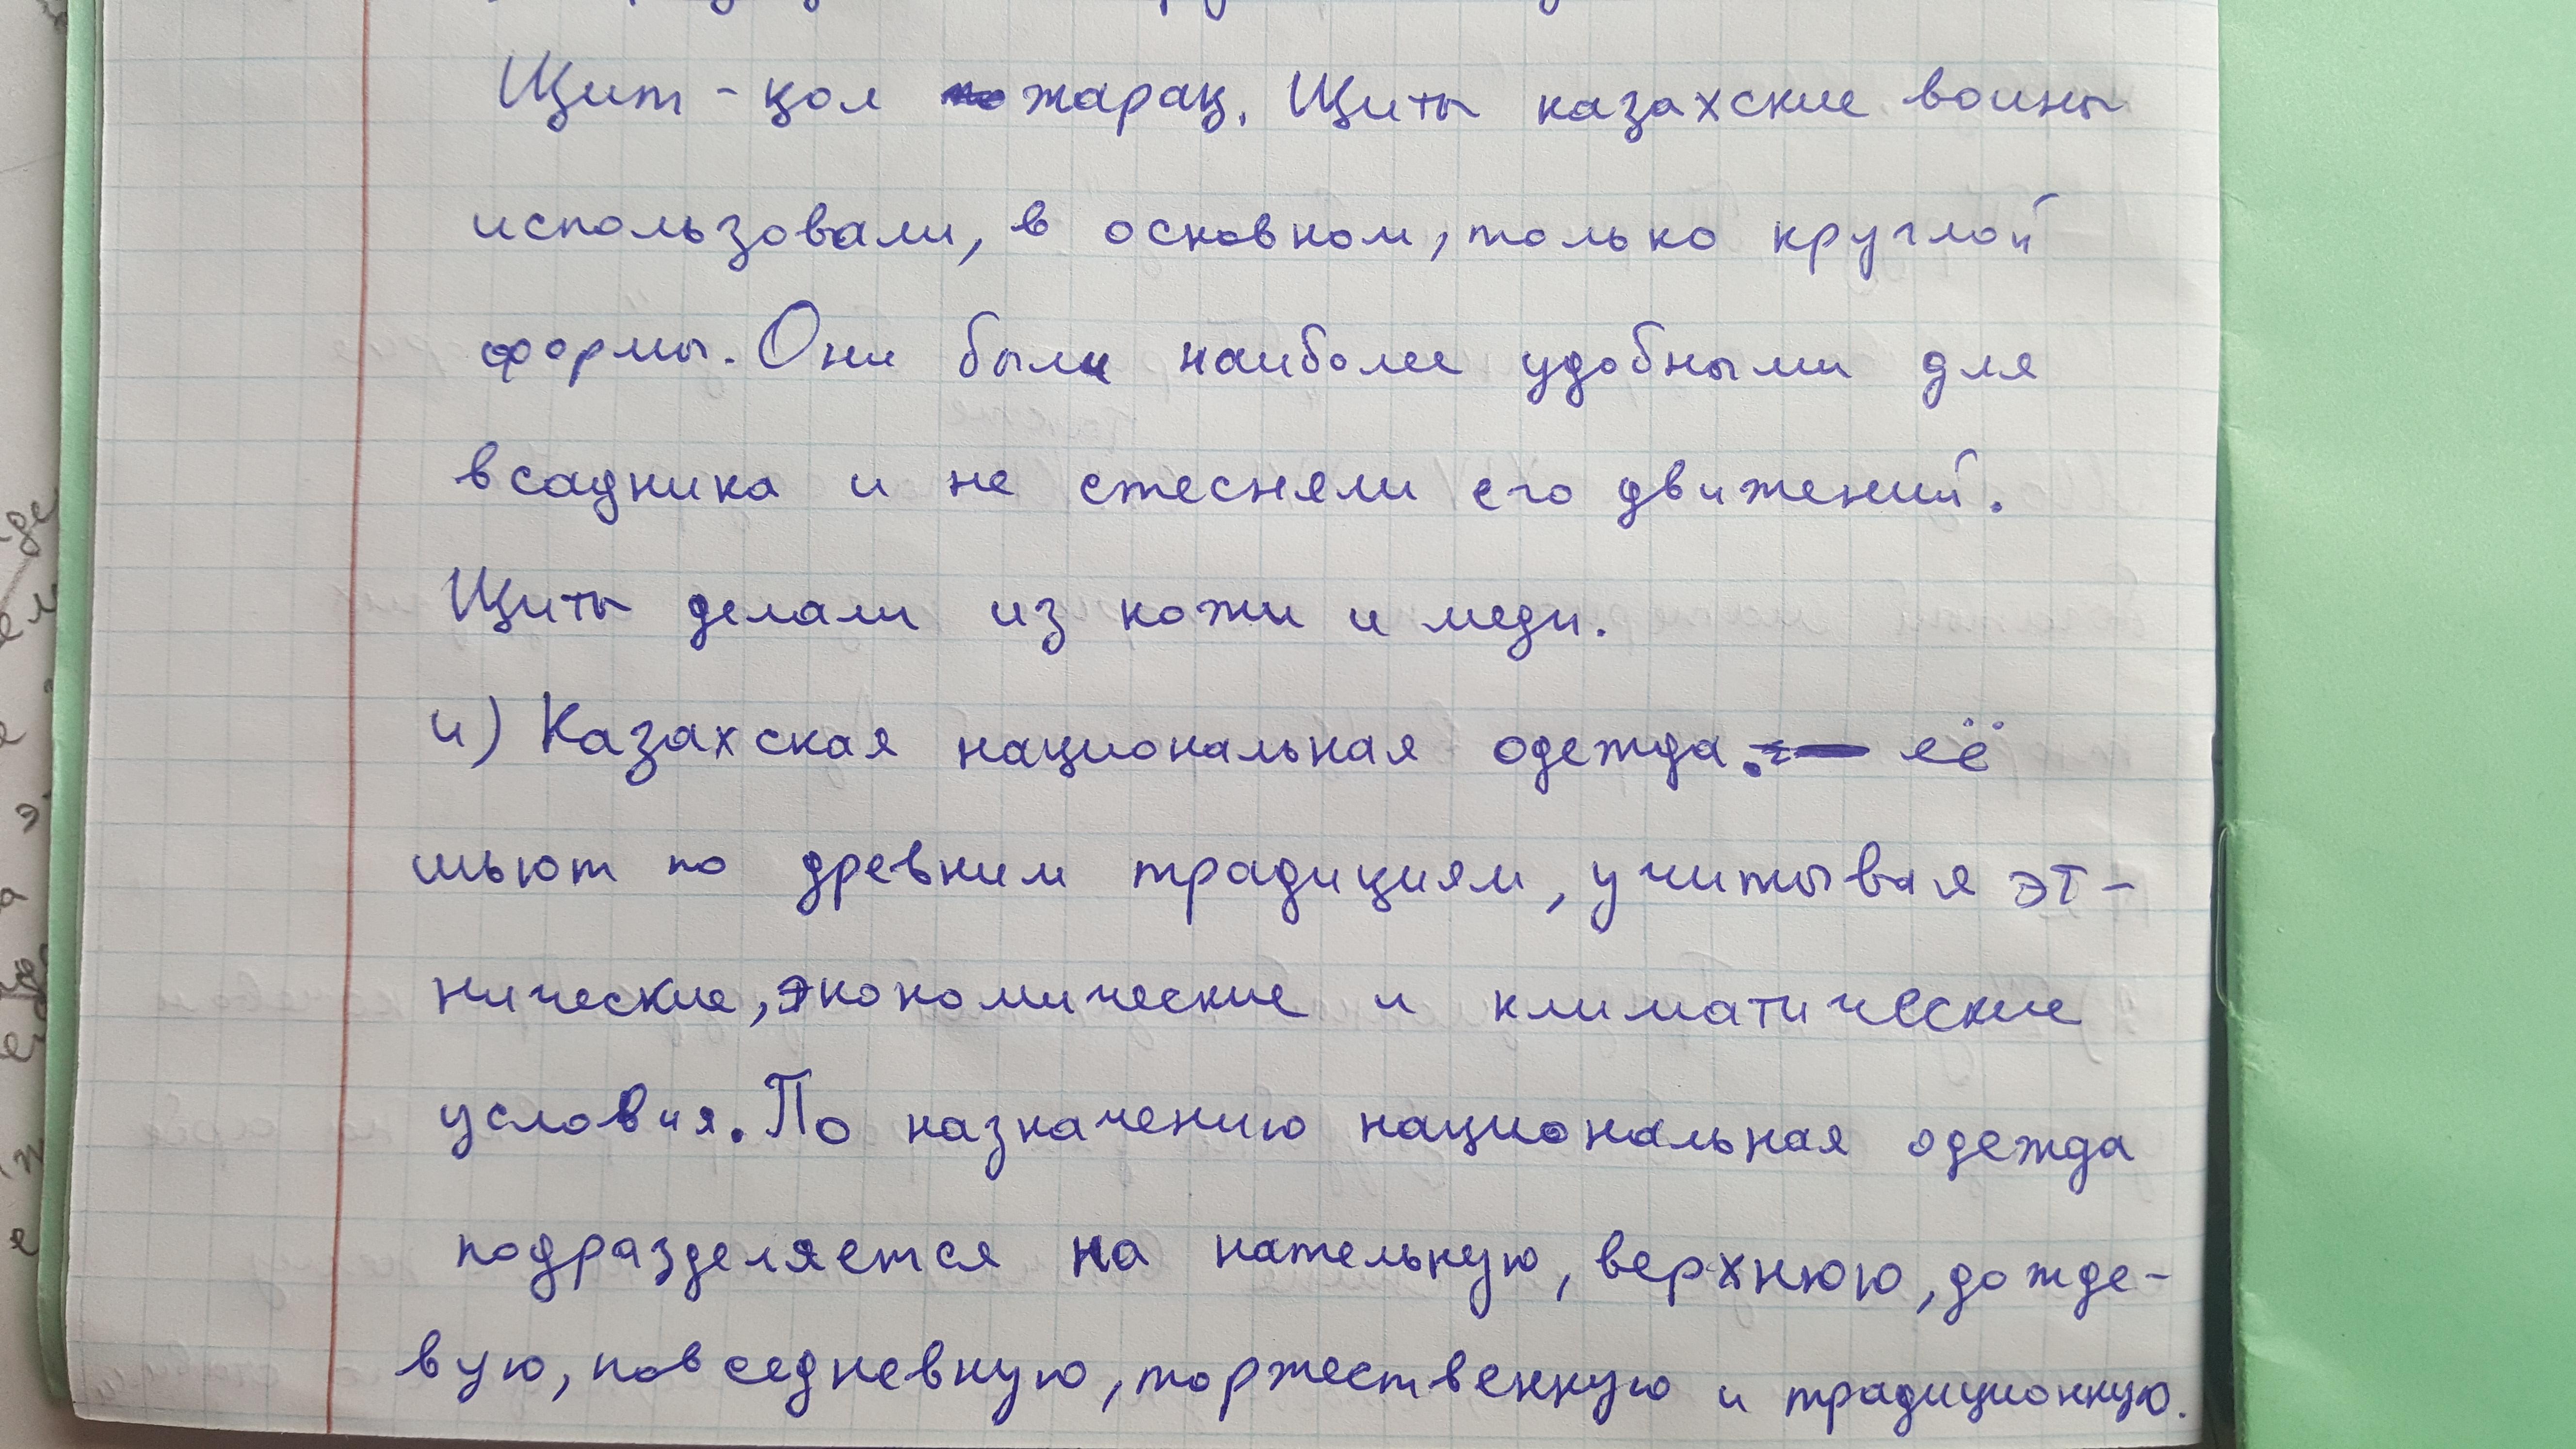 Щит - қол жарақ. Щиты казахские воины
использовали, в основном, только круглой
формы. Они были наиболее удобными для
всадника и не стесняли его движений.
Щиты делали из кожи и меди.
и) Казахская национальная одежда. её
шьют по древним традициям, учитывая эт-
нические, экономические и климатические
условия. По назначению национальная одежда
подразделяется на нательную, верхнюю, дожде-
вую, повседневную, торжественную и традиционную.